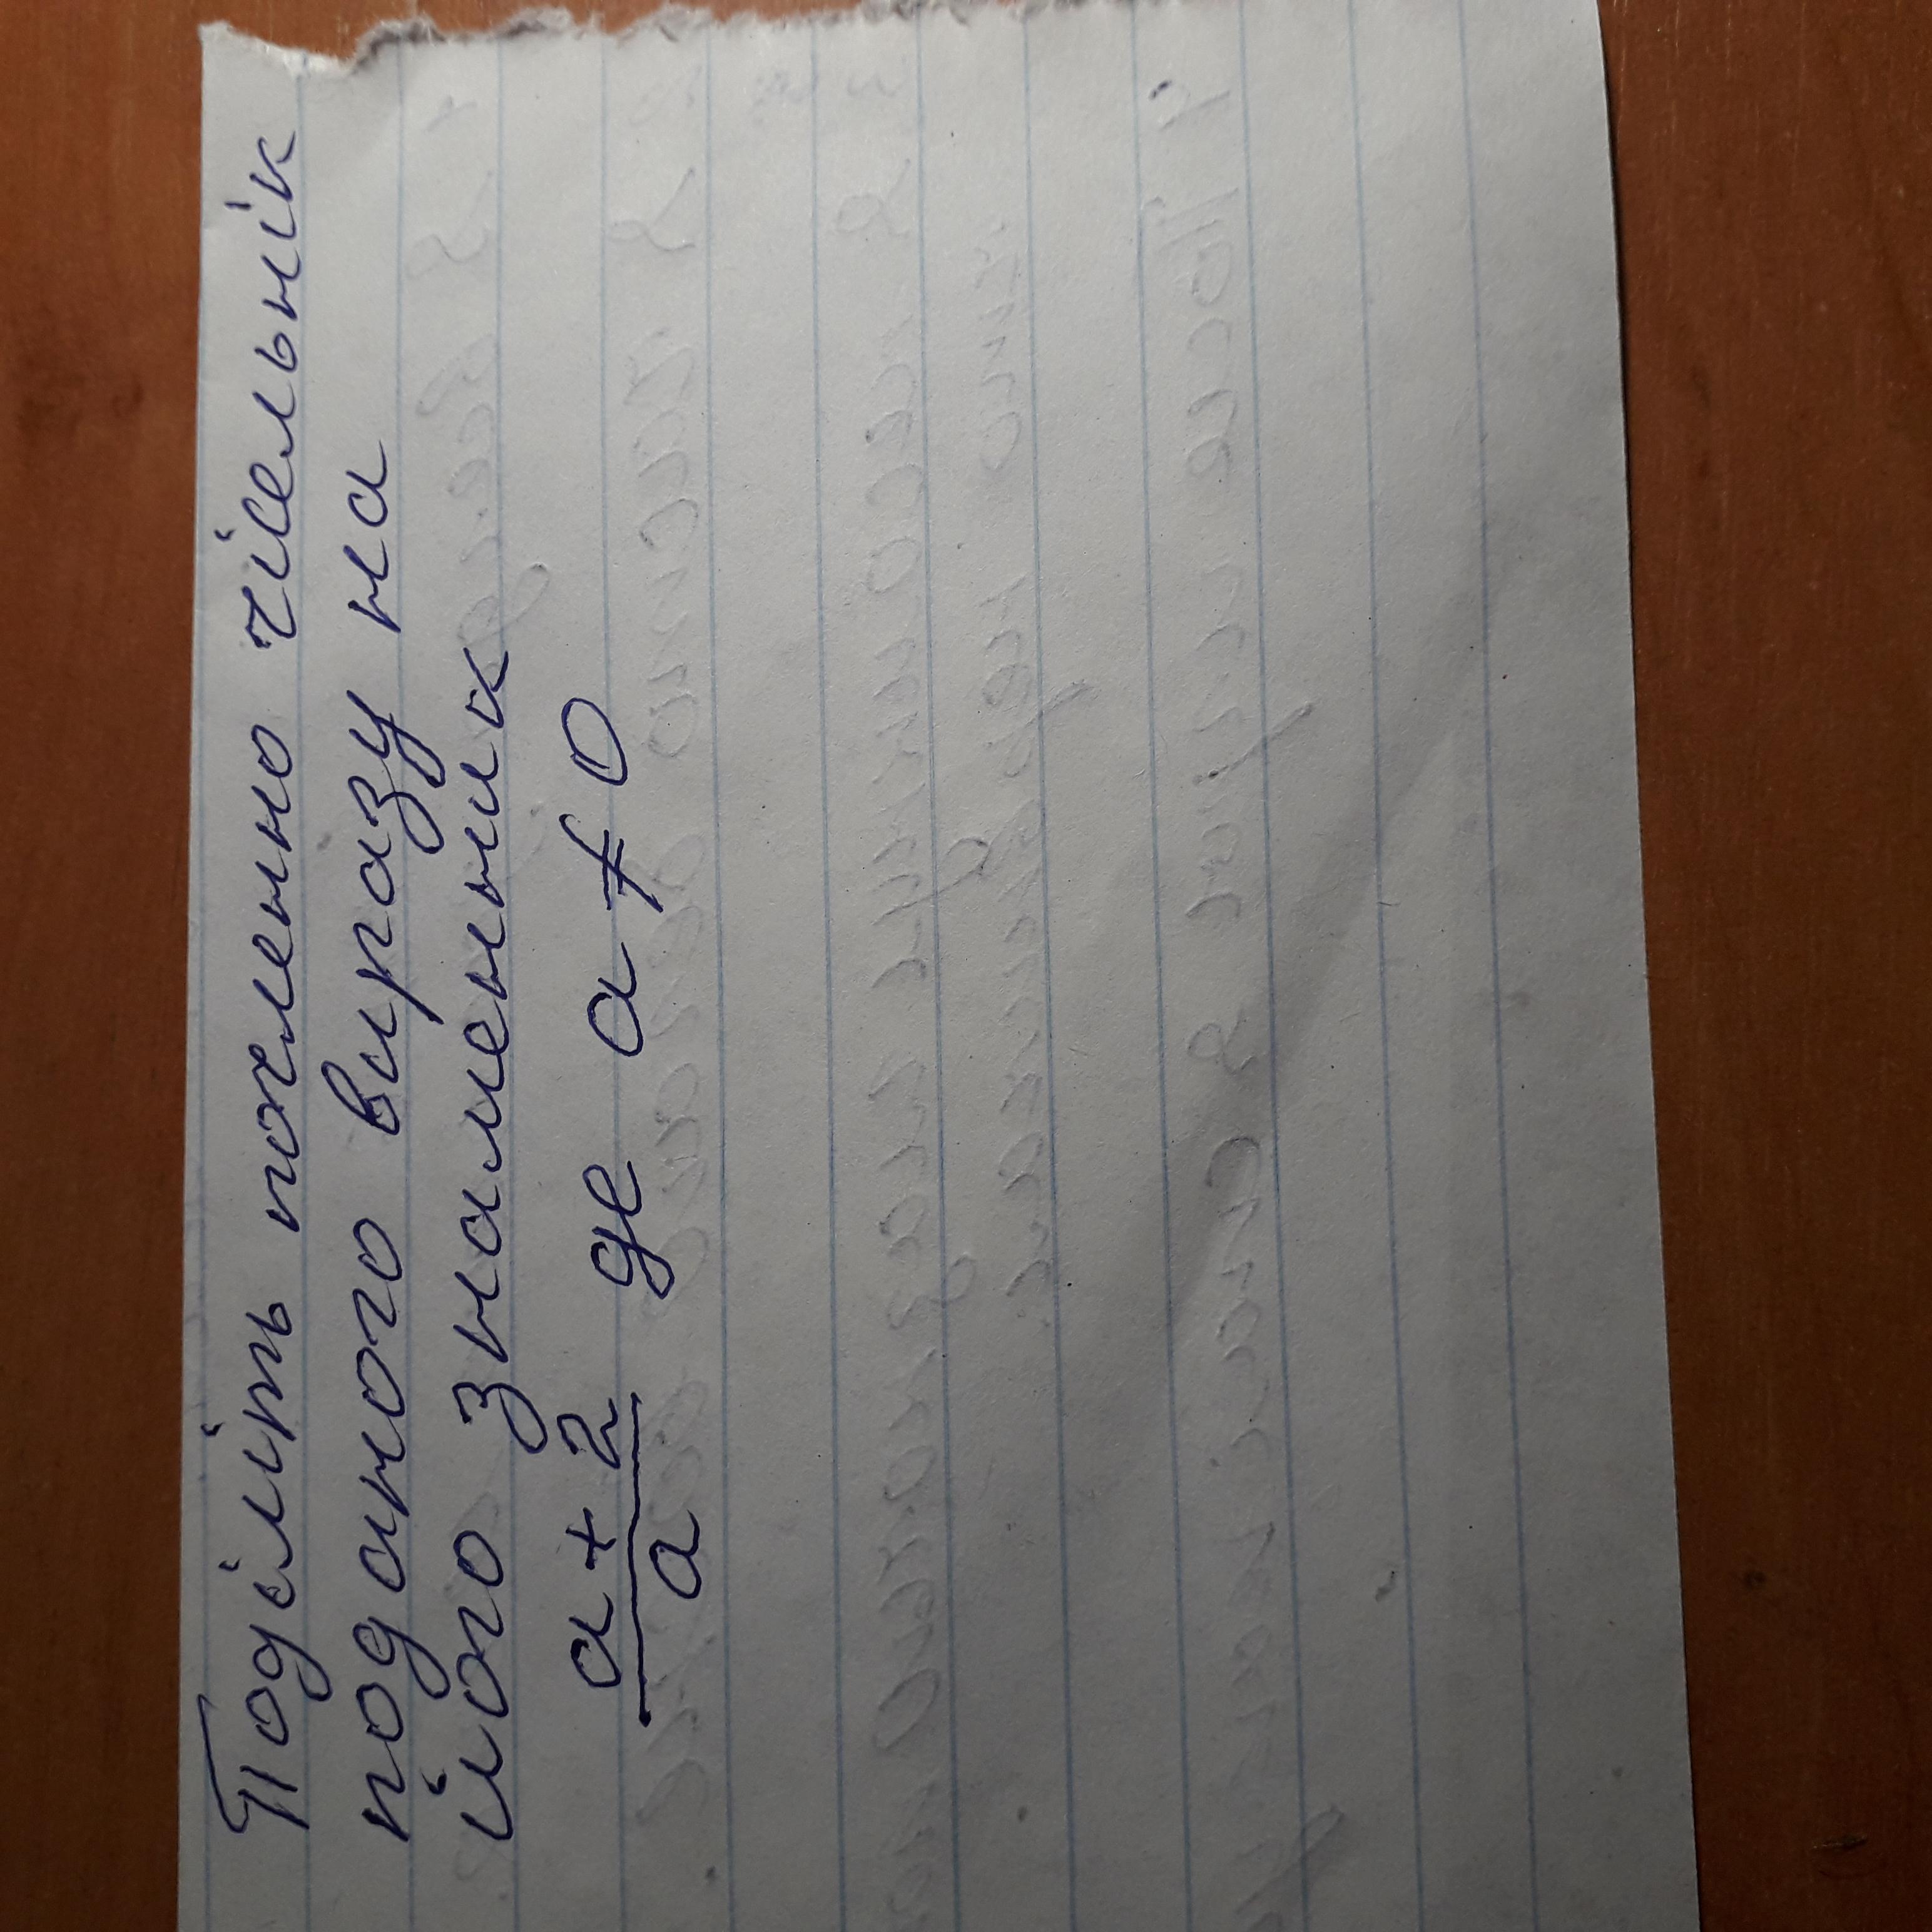 Поділіть почленно чісельнік
поданого виразу на
його знаменник
a + 2 / a де a ≠ 0